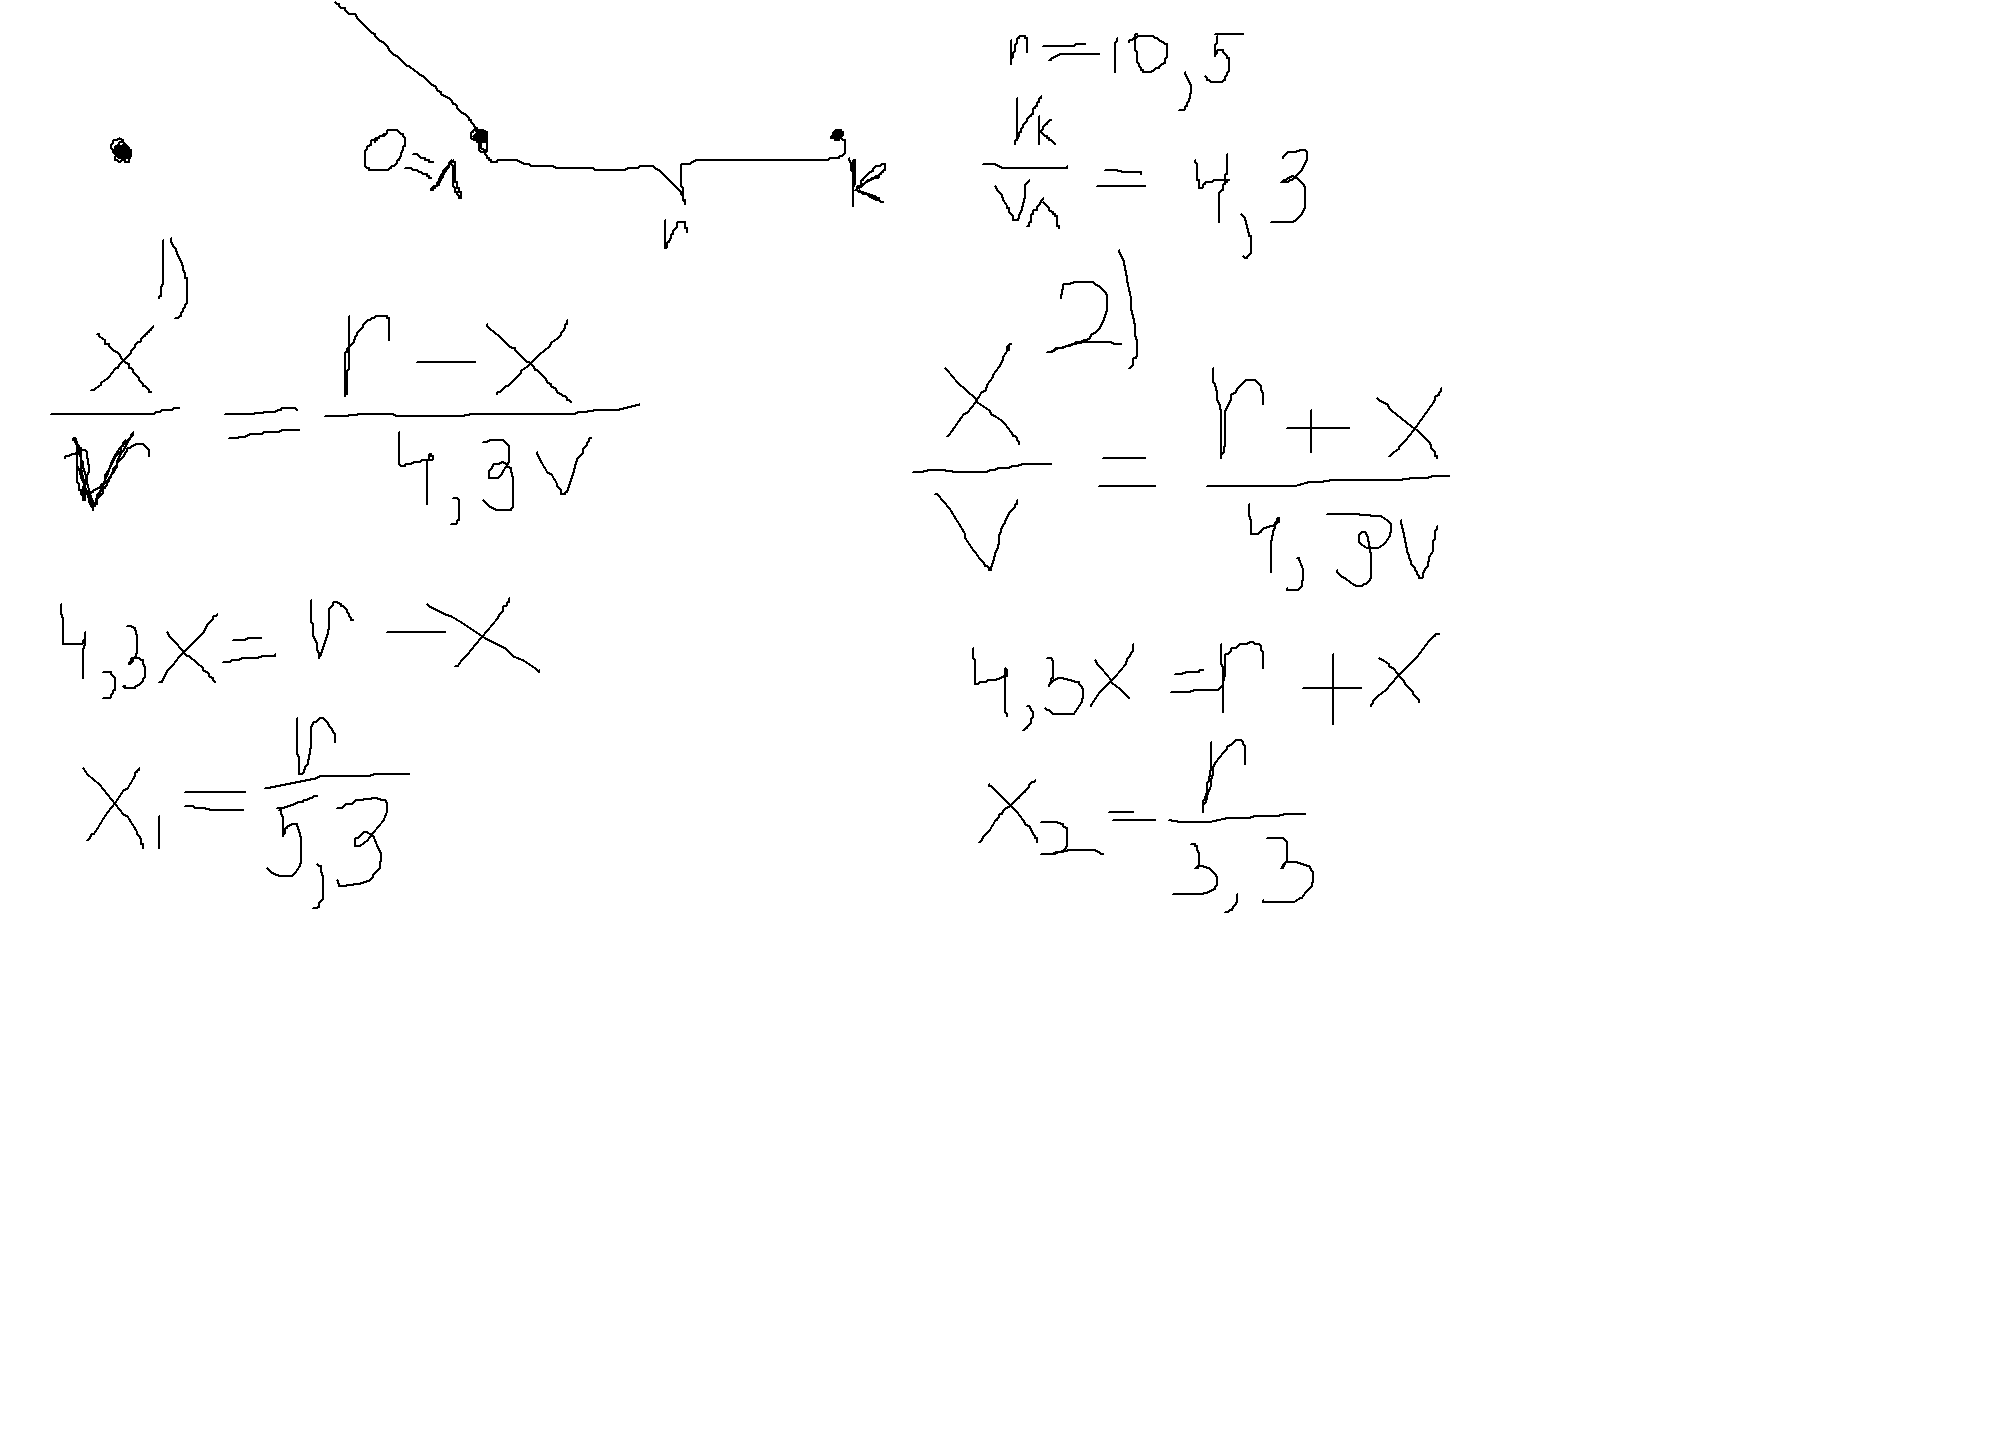 r = 10,5
O = Л
K
r
Vк / Vл = 4,3
1)
x / v = r - x / 4,3v
4,3x = r - x
x₁ = r / 5,3
2)
x / v = r + x / 4,3v
4,3x = r + x
x₂ = r / 3,3